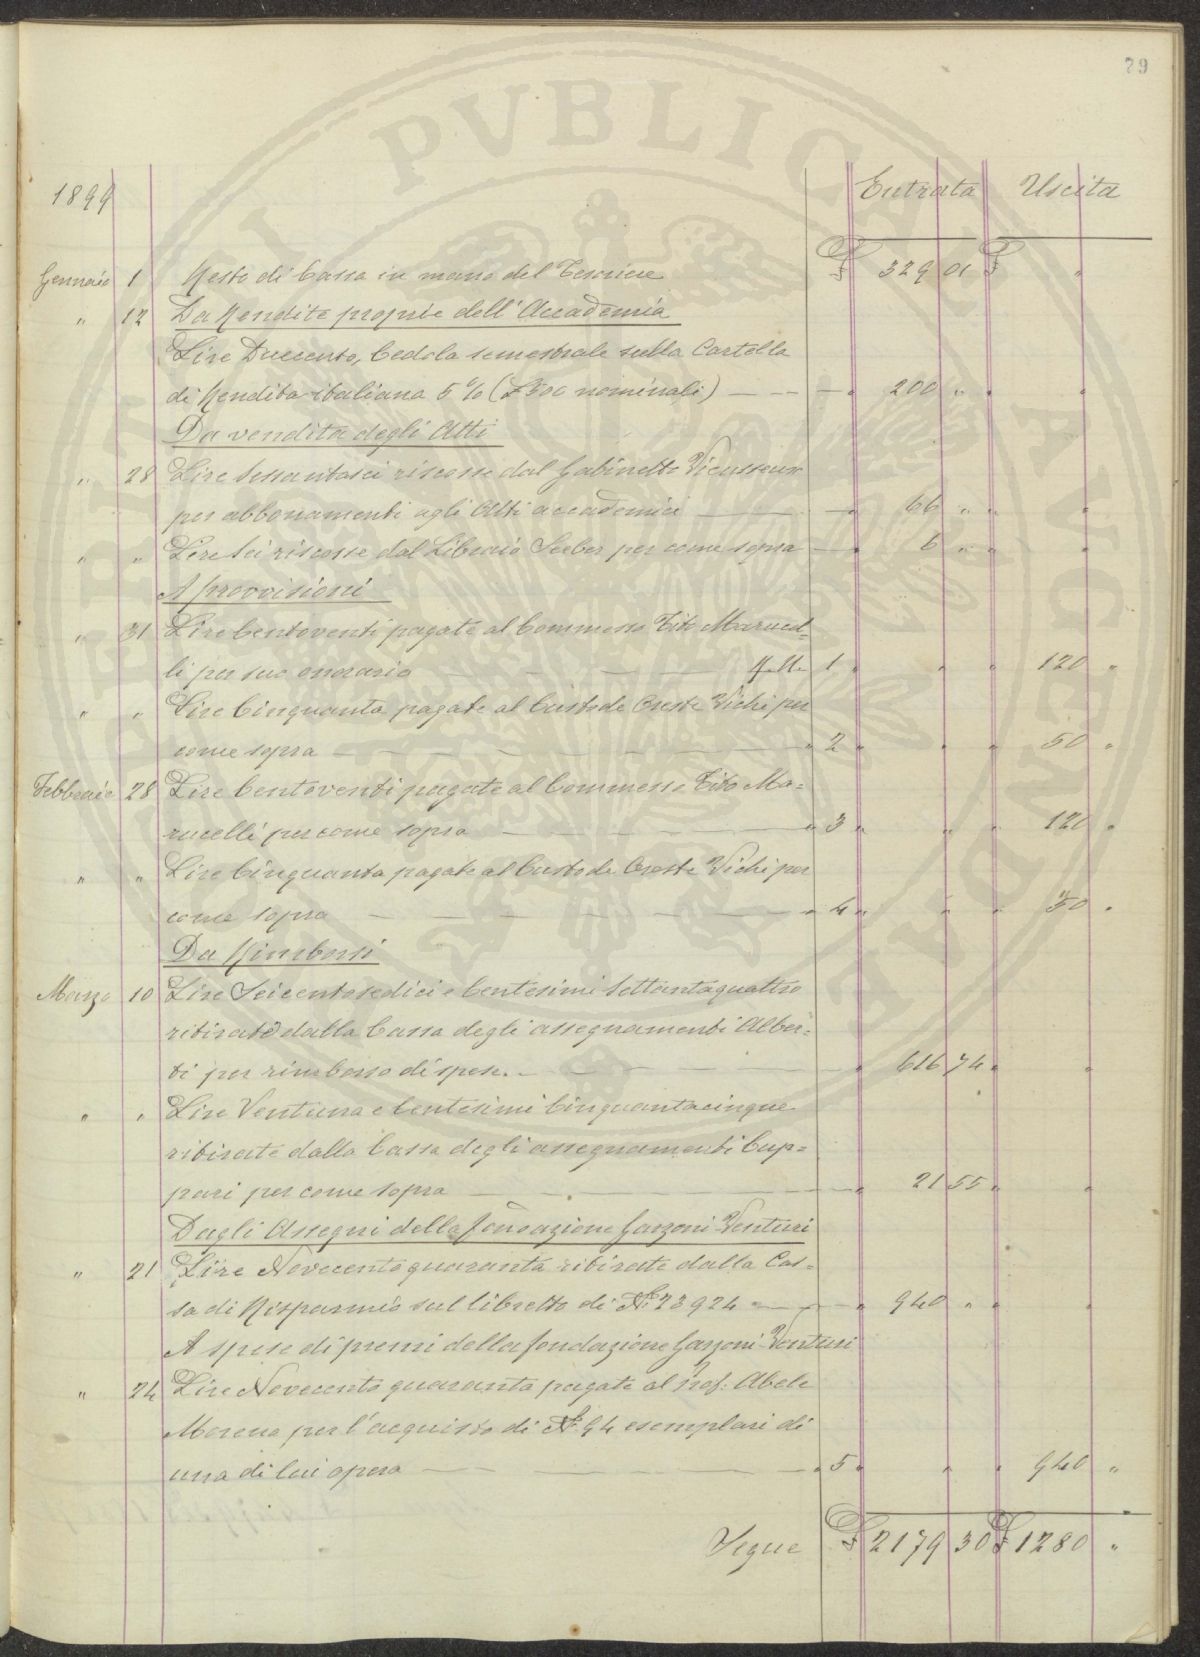 79
1899 Entrata Uscita
Gennaio 1 Resto di Cassa in mano del Tesoriere £ 329 01 £ "
" 12 Da Rendite proprie dell'Accademia
Lire Duecento, Cedola semestrale sulla Cartella
di Rendita italiana 5 % (£ 500 nominali) — " 200 " " "
Da vendita degli Atti
" 28 Lire Sessantasei riscosse dal Gabinetto Vieusseux
per abbonamenti agli Atti accademici — " 66 " " "
" " Lire Sei riscosse dal Libraio Seeber per come sopra — " 6 " " "
A provvisioni
" 31 Lire Centoventi pagate al Commesso Tito Marucel=
li per suo onorario — 1 " " " 120 "
" " Lire Cinquanta pagate al Custode Oreste Vichi per
come sopra — " 2 " " " 50 "
Febbraio 28 Lire Centoventi pagate al Commesso Tito Ma=
rucelli per come sopra — " 3 " " " 120 "
" " Lire Cinquanta pagate al Custode Oreste Vichi per
come sopra — " 4 " " " 50 "
Da Rimborsi
Marzo 10 Lire Seicentosedici e Centesimi Settantaquattro
ritirate dalla Cassa degli assegnamenti Alber=
ti per rimborso di spese. — " 616 74 " "
" " Lire Ventuna e Centesimi Cinquantacinque
ritirate dalla Cassa degli assegnamenti Cup=
pari per come sopra — " 21 55 " "
Dagli Assegni della fondazione Garzoni-Venturi
" 21 Lire Novecentoquaranta ritirate dalla Cas=
sa di Risparmio sul libretto di N.º 23924 — " 940 " " "
A spese di premi della fondazione Garzoni-Venturi
" 24 Lire Novecento quaranta pagate al Prof: Abele
Morena per l'acquisto di Nº 94 esemplari di
una di lui opera — " 5 " " " 940 "
Segue £ 2179 30 £ 1280 "
PVBLICAE